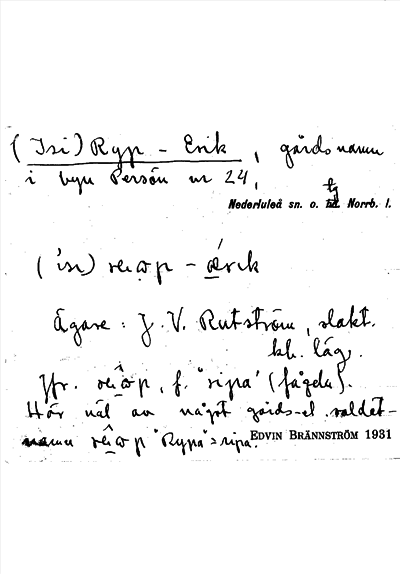 (Isi) Ryp - Erik, gårdsnamn
i byn Persön nr 24,
Nederluleå sn. o. tg Norrb. l.
Ägare: J. V. Rutström, slakt.
kl. läg.
Jfr. f. "ripa" (fågeln).
Här väl av något gårds-el. soldat-
namn "Rypa" = ripa.
EDVIN BRÄNNSTRÖM 1931